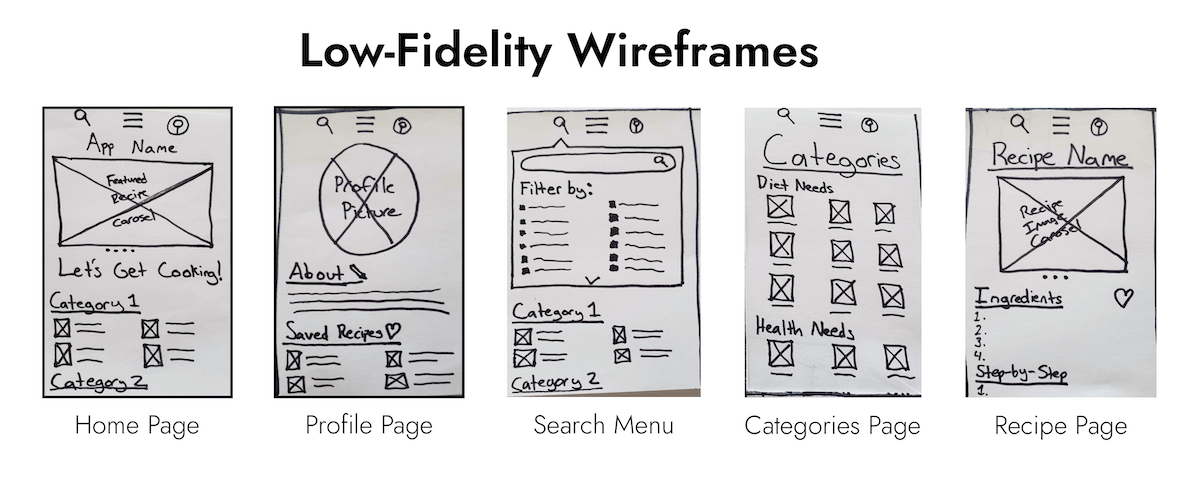 Low-Fidelity Wireframes
App Name
Featured
Recipe
Carosel
Let's Get Cooking!
Category 1
Category 2
Home Page
Profile
Picture
About
Saved Recipes
Profile Page
Filter by:
Category 1
Category 2
Search Menu
Categories
Diet Needs
Health Needs
Categories Page
Recipe Name
Recipe
Image
Carosel
Ingredients
1.
2.
3.
4.
Step-by-Step
1.
Recipe Page